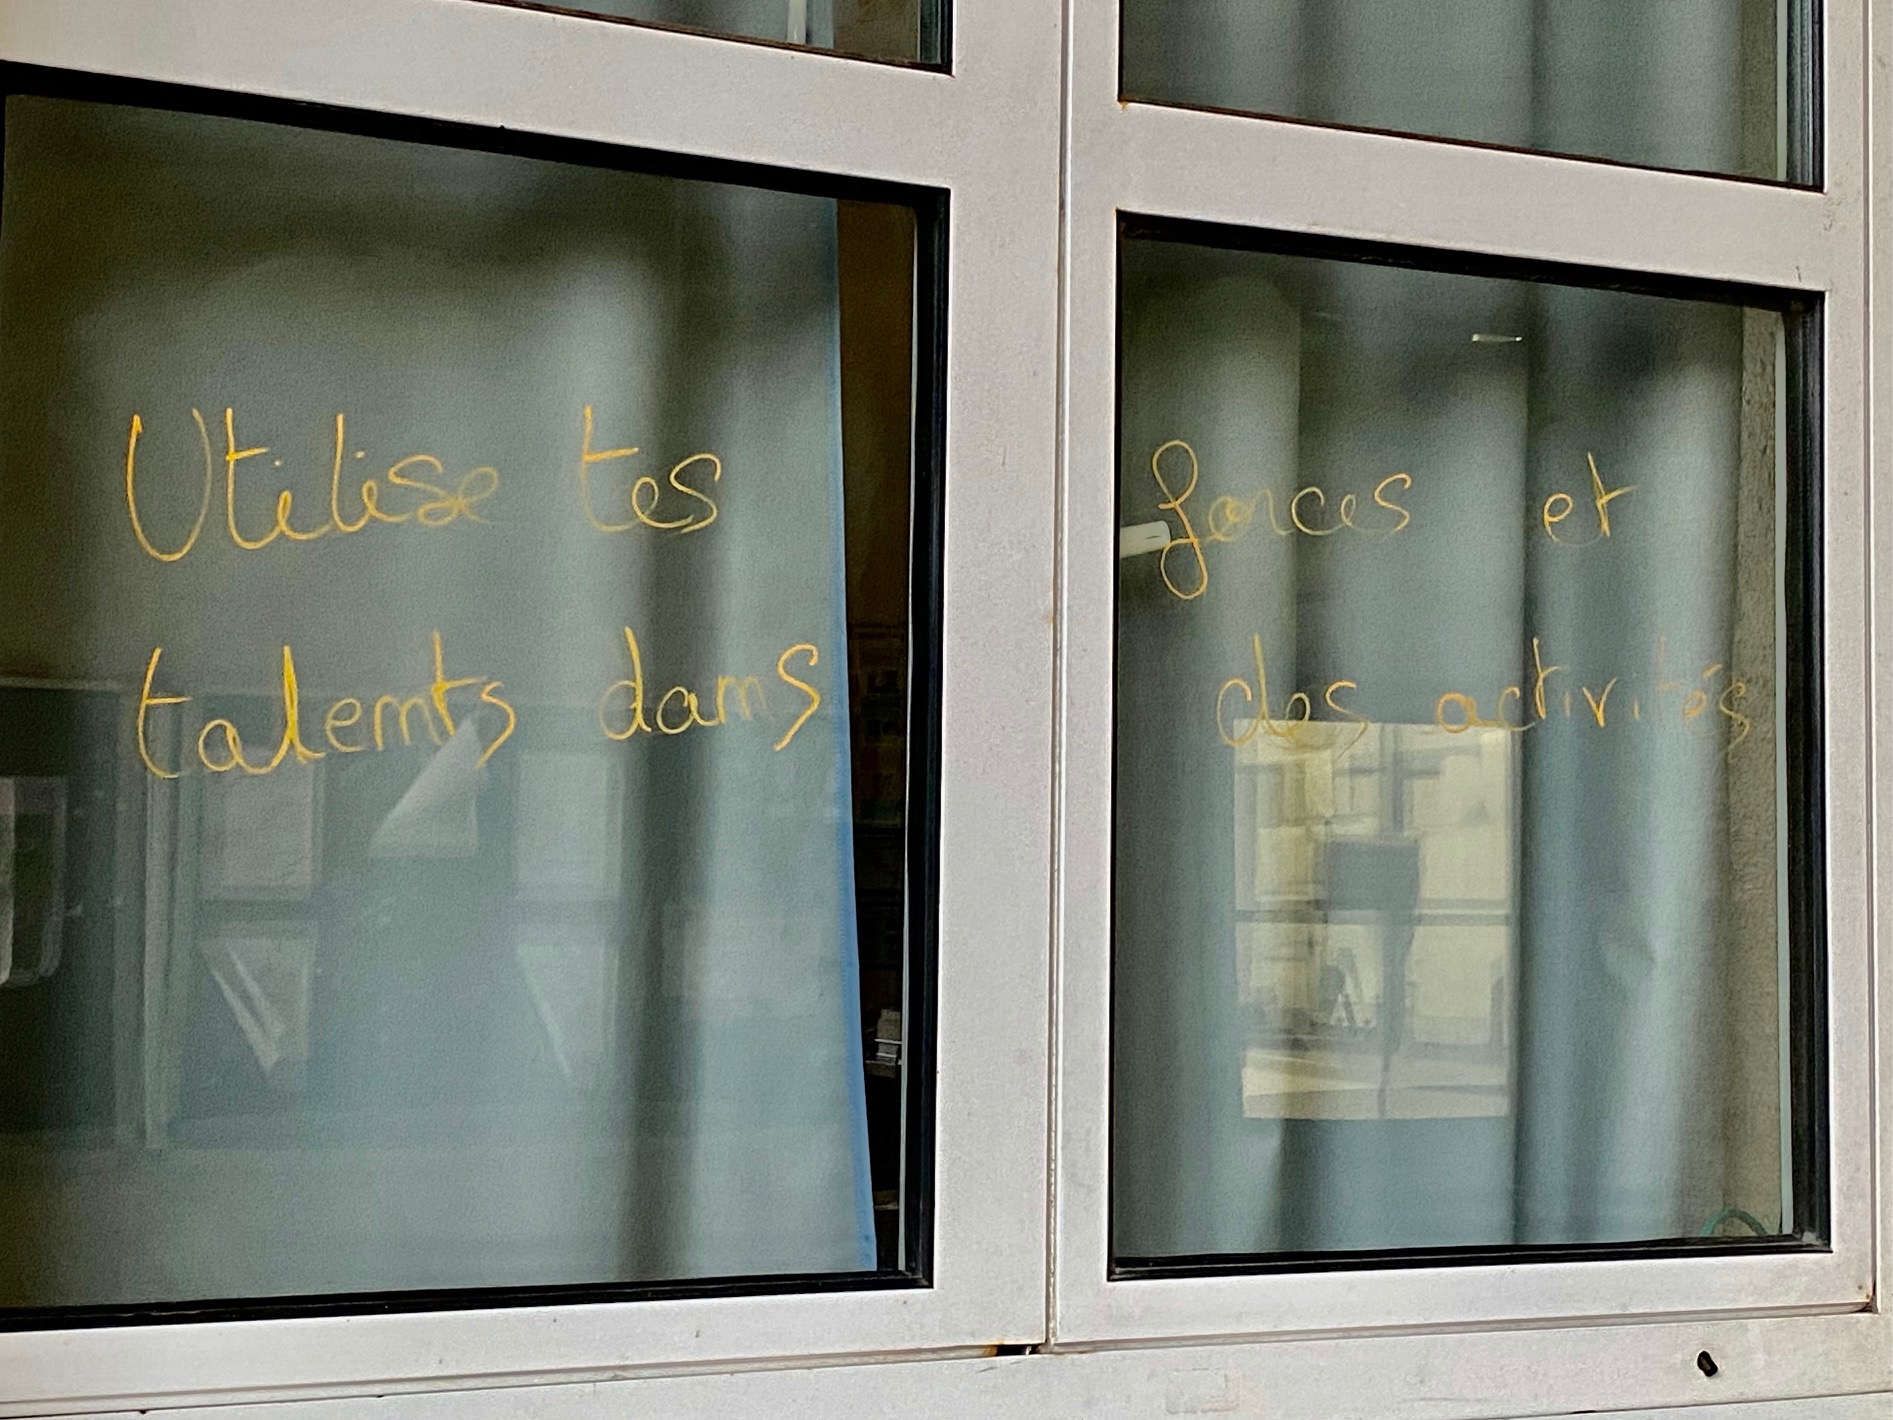 Utilise tes forces et
talents dans des activités